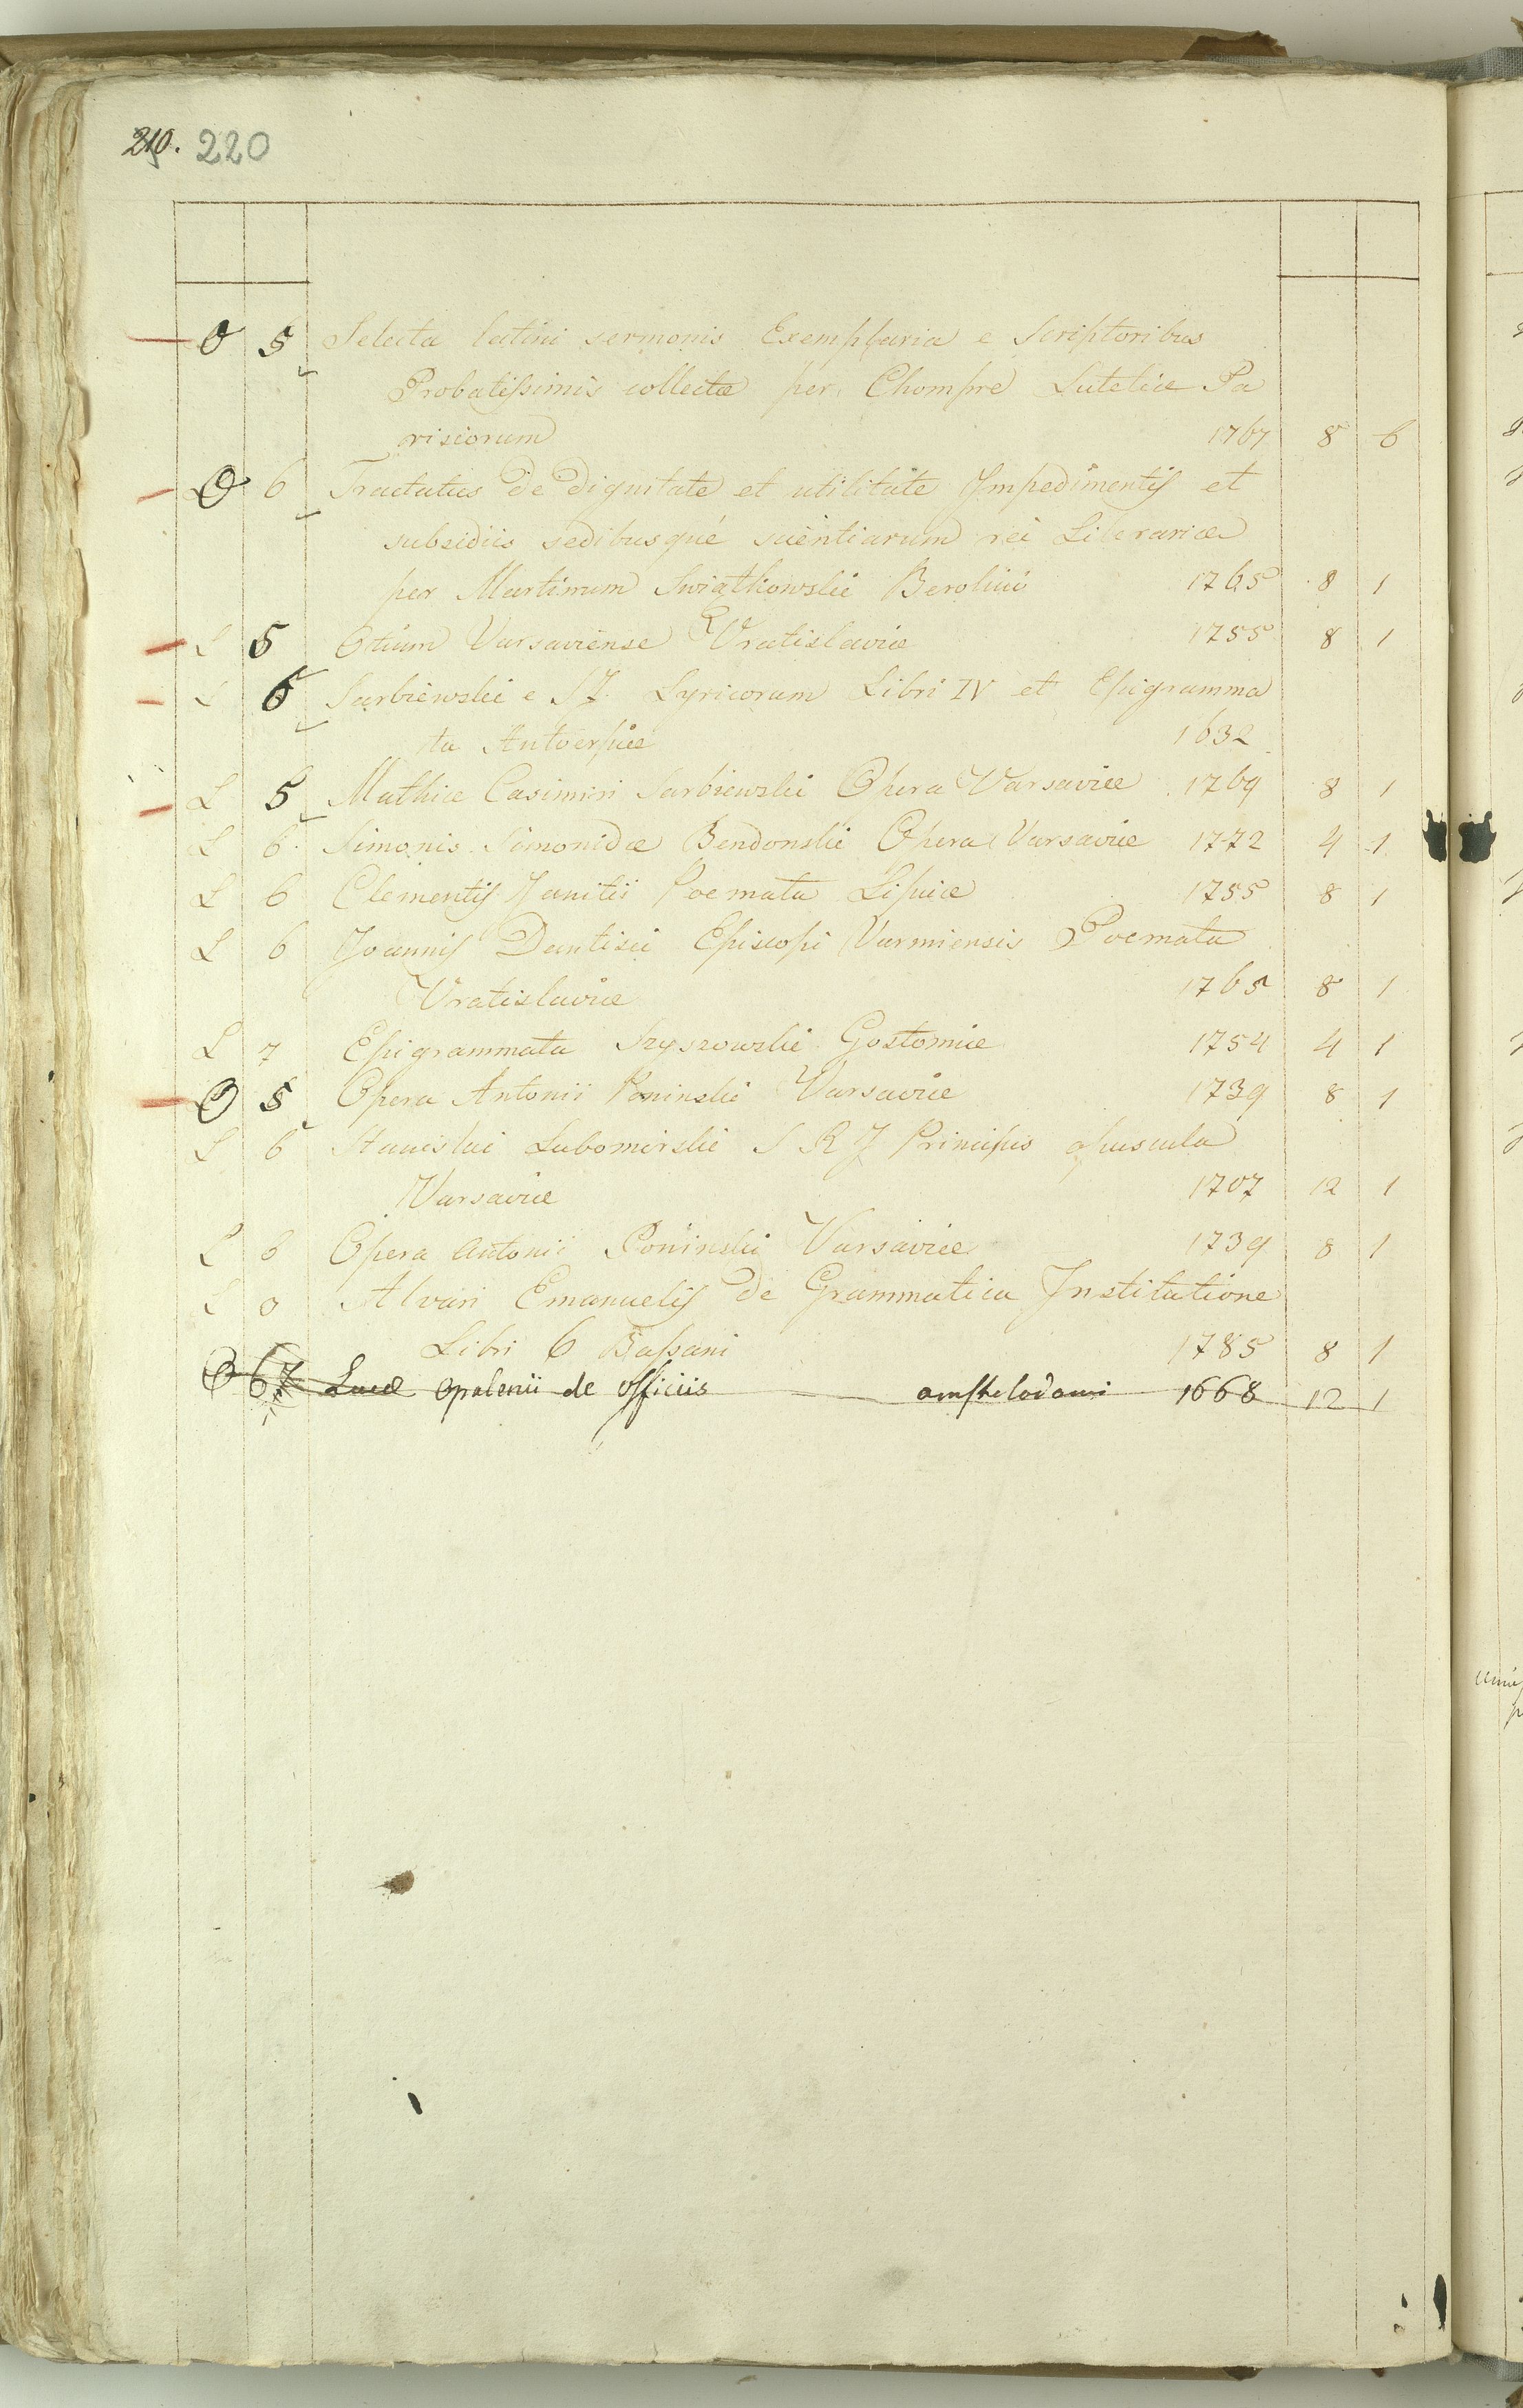 210. 220
O 5 Selecta latini sermonis Exemplaria e Scriptoribus
Probatissimis collecta per Chompre Lutetiæ Pa
risiorum 1767 8 6
O 6 Tractatus de dignitate et utilitate Impedimentis et
subsidiis sedibusque scientiarum rei Literariæ
per Martinum Swiątkowski Berolini 1765 8 1
L 5 Otium Varsaviense Vratislaviæ 1755 8 1
L 6 Sarbiewski e S J. Lyricorum Libri IV et Epigramma
ta Antverpiæ 1632
L 5 Mathiæ Casimiri Sarbiewski Opera Varsaviæ 1769 8 1
L 6 Simonis Simonidæ Bendonski Opera Varsaviæ 1772 4 1
L 6 Clementis Janitii Poemata Lipsiæ 1755 8 1
L 6 Joannis Dantisci Episcopi Varmiensis Poemata
Vratislaviæ 1765 8 1
L 7 Epigrammata Szyszowski Gostomiæ 1754 4 1
O 5 Opera Antonii Poninski Varsaviæ 1739 8 1
L 6 Stanislai Lubomirski S R J Principis opuscula
Varsaviæ 1707 12 1
L 6 Opera Antonii Poninski Varsaviæ 1739 8 1
L 0 Alvari Emanuelis de Grammatica Institutione
Libri 6 Bassani 1785 8 1
O 67 Lucæ Opalenii de officiis amstelodami 1668 12 1